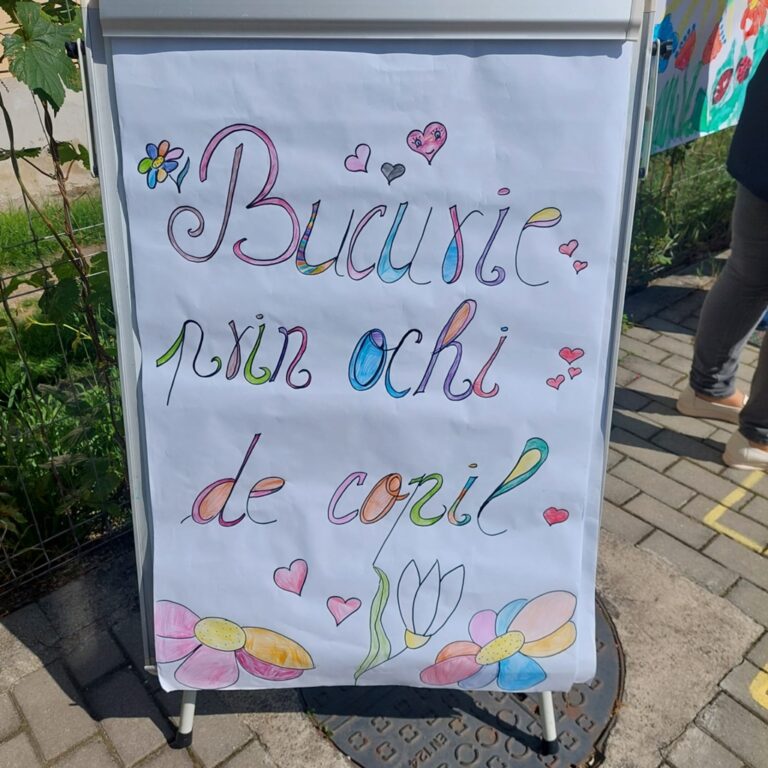 Bucurie
prin ochi
de copil
EN124